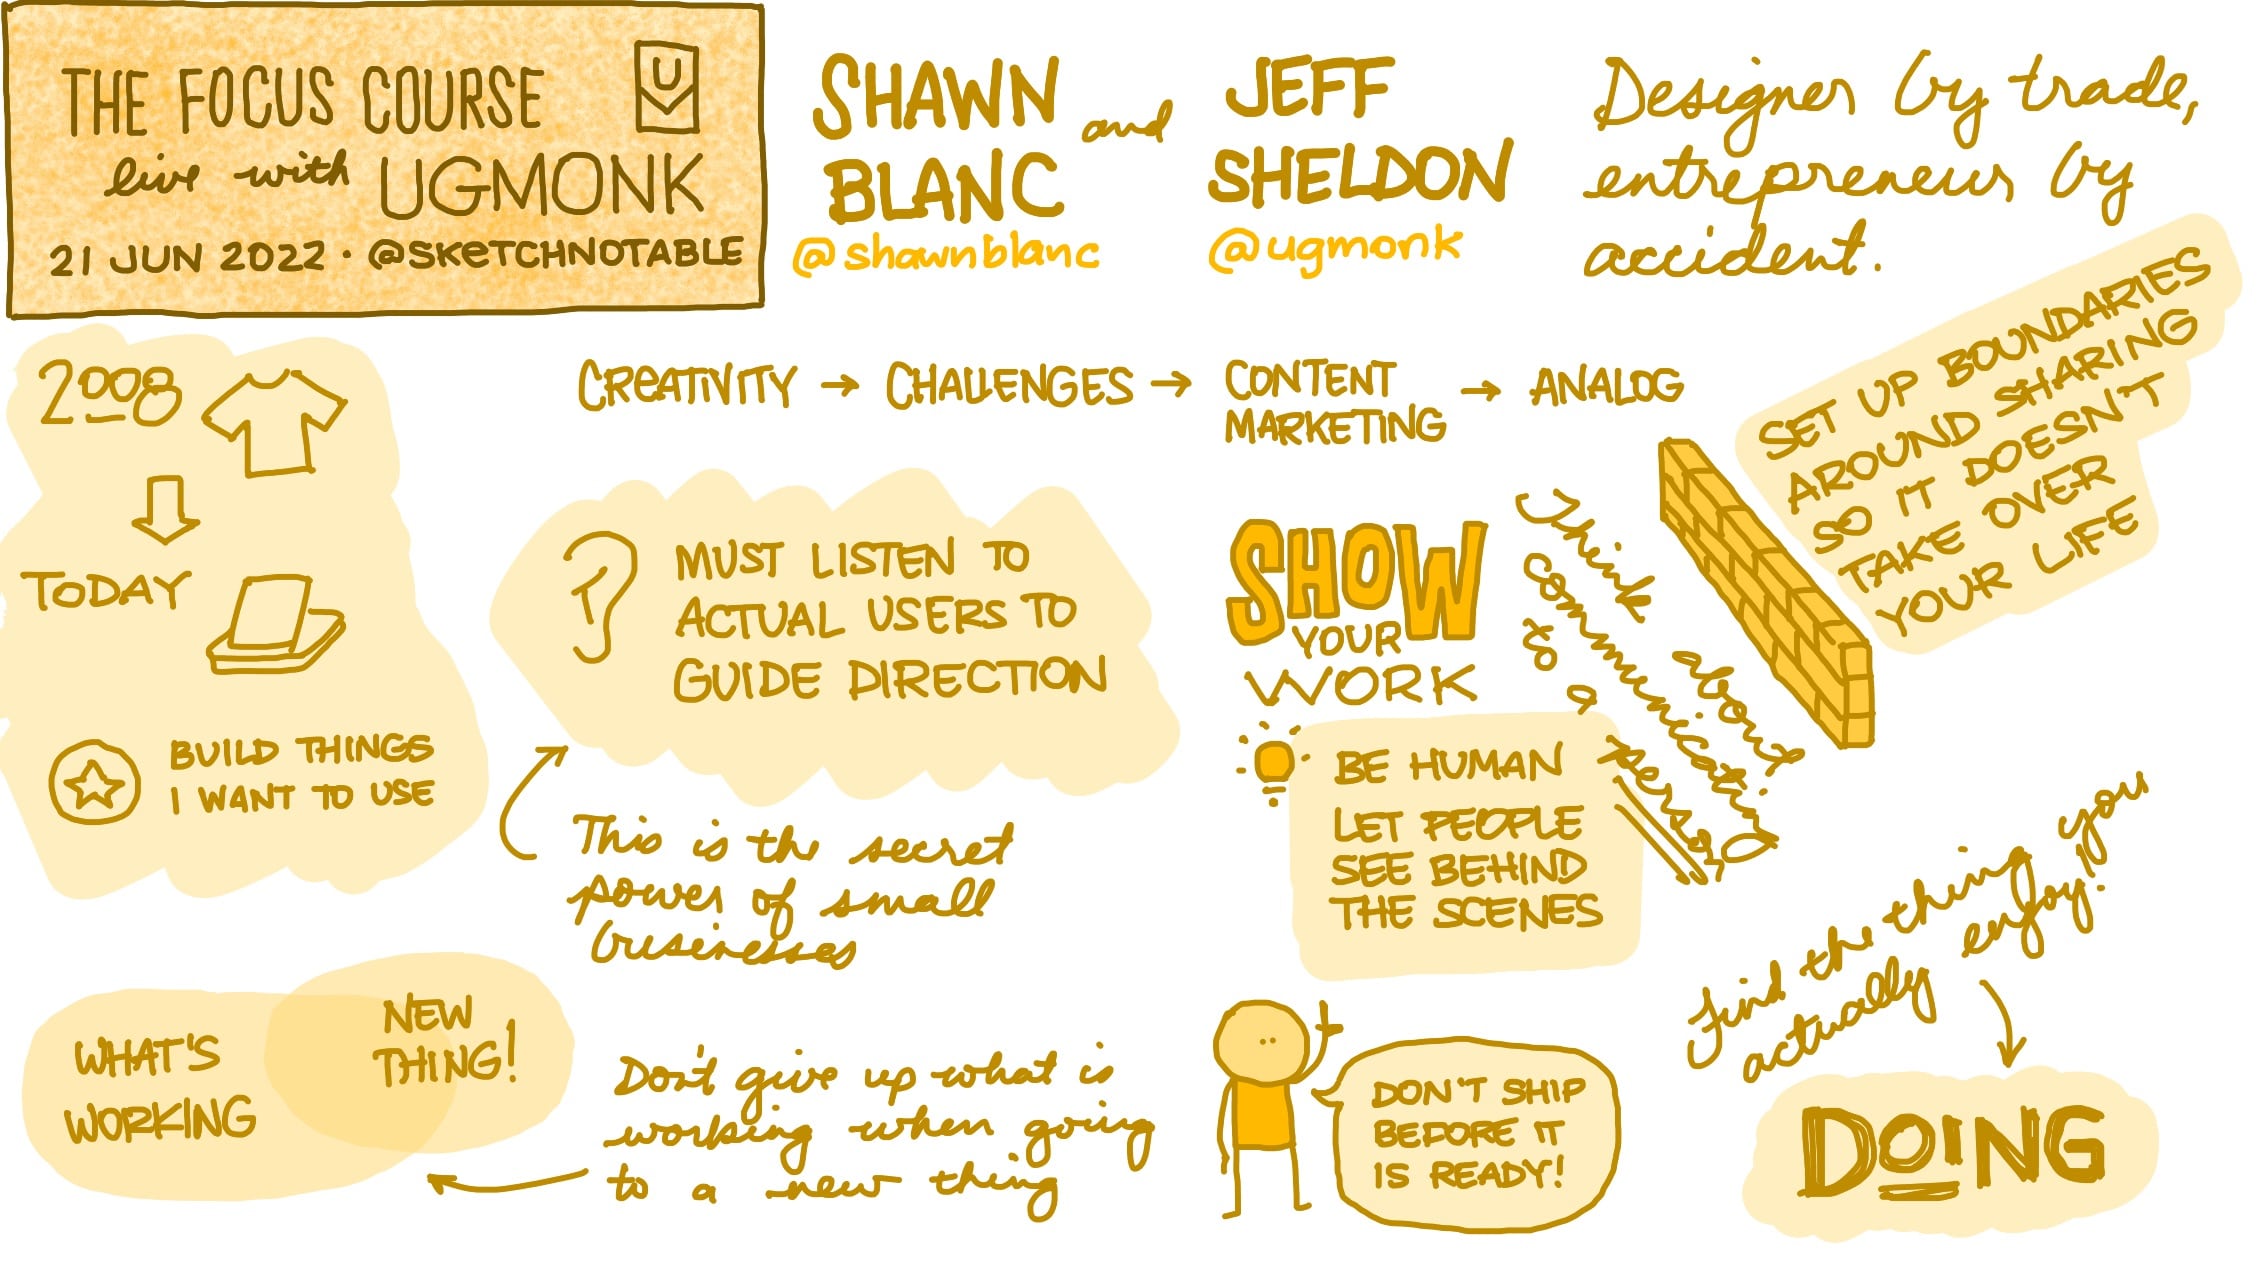 THE FOCUS COURSE
U
live with UGMONK
21 JUN 2022 · @SKETCHNOTABLE
SHAWN
BLANC
@shawnblanc
and
JEFF
SHELDON
@ugmonk
Designer by trade,
entrepreneur by
accident.
2008
TODAY
BUILD THINGS
I WANT TO USE
CREATIVITY → CHALLENGES → CONTENT
MARKETING → ANALOG
MUST LISTEN TO
ACTUAL USERS TO
GUIDE DIRECTION
This is the secret
power of small
businesses
SHOW
YOUR
WORK
BE HUMAN
LET PEOPLE
SEE BEHIND
THE SCENES
Think about
communicating
to a person
SET UP BOUNDARIES
AROUND SHARING
SO IT DOESN'T
TAKE OVER
YOUR LIFE
WHAT'S
WORKING
NEW
THING!
Don't give up what is
working when going
to a new thing
DON'T SHIP
BEFORE IT
IS READY!
Find the thing you
actually enjoy!
DOING